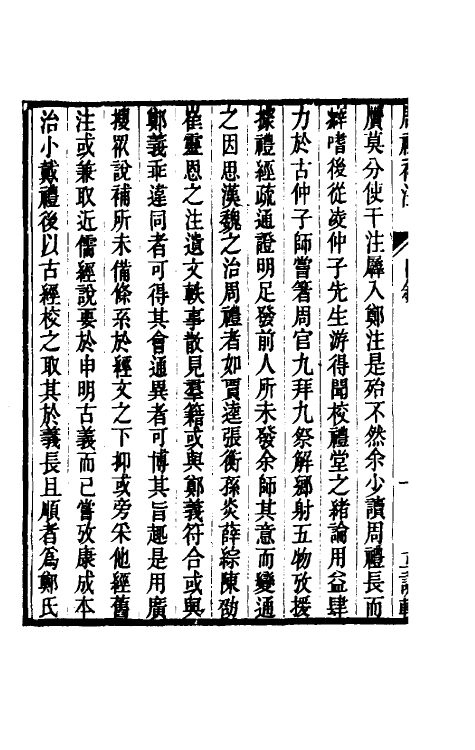 贋莫分使干注羼入鄭注是殆不然余少讀周禮長而
癖嗜後從凌仲子先生游得聞校禮堂之緒論用益肆
力於古仲子師嘗箸周官九拜九祭解鄉射五物攷援
據禮經疏通證明足發前人所未發余師其意而變通
之因思漢魏之治周禮者如賈逵張衡孫炎薛綜陳劭
崔靈恩之注遺文軼事散見羣籍或與鄭義符合或與
鄭義乖違同者可得其會通異者可博其旨趣是用廣
搜眾說補所未備條系於經文之下抑或旁采他經舊
注或兼取近儒經說要於申明古義而已嘗攷康成本
治小戴禮後以古經校之取其於義長且順者為鄭氏